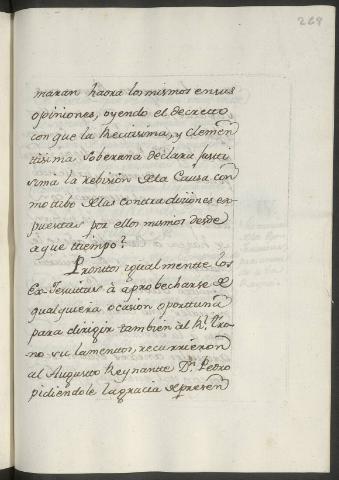 269
maran haora los mismos en sus
opiniones, oyendo el decreto
con que la Rectisima, y Clemen
tisima Soberana declara justi
sima la rebisión dela Causa con
motibo delas contradiziones ex
puestas por ellos mismos desde
aque tiempo?
Prontos igualmente los
Ex-Jesuitas à aprobecharse de
qualquiera ocasion oportuna
para dirigir tambien al Rl. Tro
no sus lamentos, recurrieron
al Augusto Reynante Dn. Pedro
pidiendole la gracia de presen